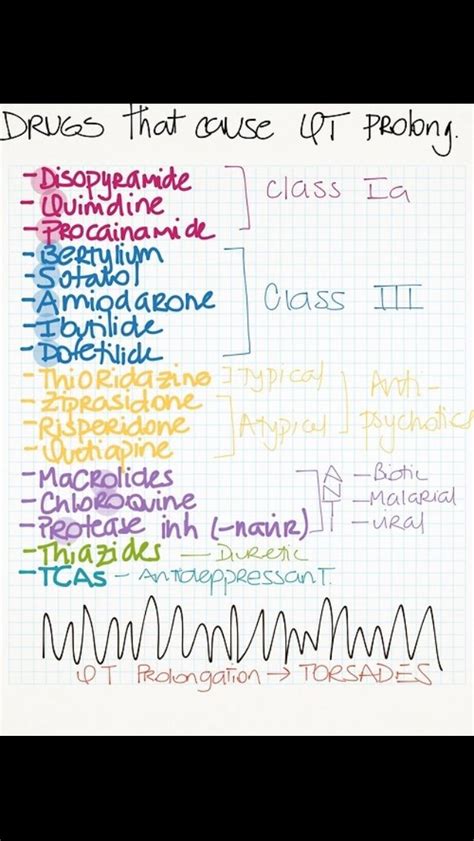 DRUGS that cause QT Prolong.
- Disopyramide
- Quinidine
- Procainamide
Class Ia
- Bertylium
- Sotalol
- Amiodarone
- Ibutilide
- Dofetilide
Class III
- Thioridazine ] Typical
- Ziprasidone
- Risperidone
- Quetiapine
Atypical
Anti-psychotics
- Macrolides
- Chloroquine
- Protease inh (-navir)
ANTI
- Biotic
- Malarial
- viral
- Thiazides — Diuretic
- TCAs - Antideppressant.
QT Prolongation → TORSADES